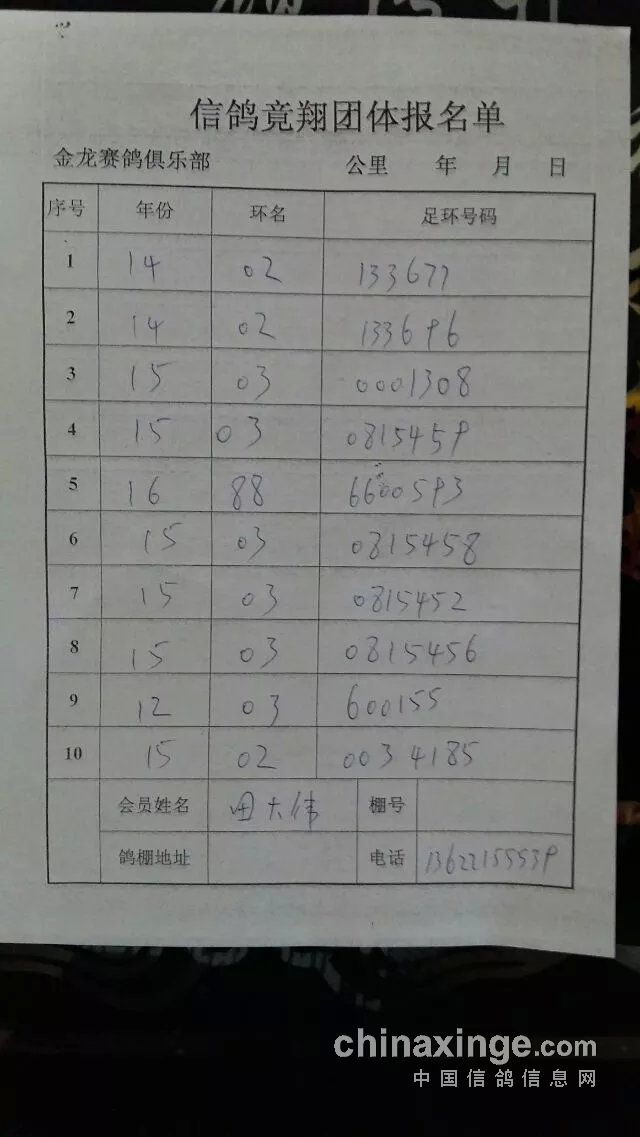 信鸽竟翔团体报名单
金龙赛鸽俱乐部 公里 年 月 日
序号 年份 环名 足环号码
1 14 02 133677
2 14 02 133696
3 15 03 0001308
4 15 03 0815459
5 16 88 6600593
6 15 03 0815458
7 15 03 0815452
8 15 03 0815456
9 12 03 600155
10 15 02 0034185
会员姓名 田大伟 棚号
鸽棚地址 电话 13622155539
chinaxinge.com
中国信鸽信息网